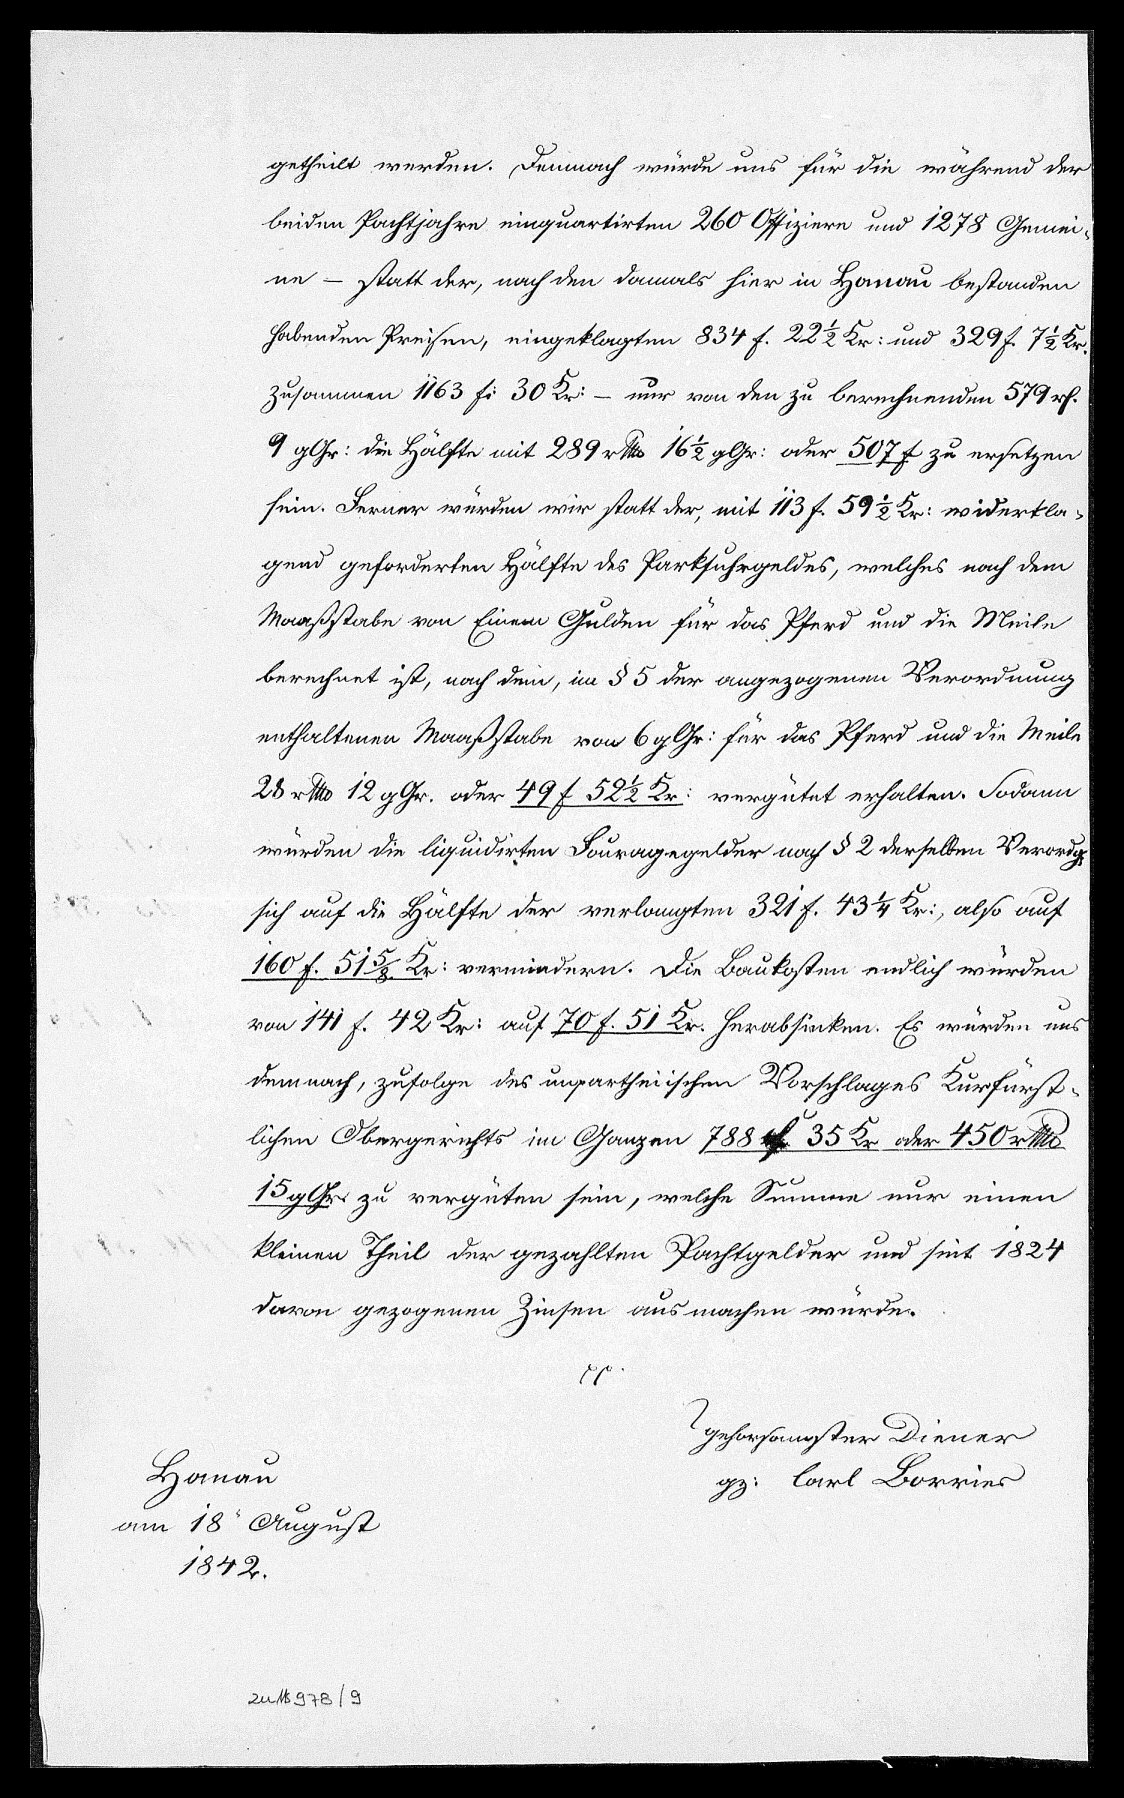 getheilt werden. Demnach würde uns für die während der
beiden Pachtjahre einquartirten 260 Offiziere und 1278 Gemei-
ne – statt der, nach den damals hier in Hanau bestanden
habenden Preisen, eingeklagten 834 f. 22½ Kr: und 329 f. 7½ Kr.
zusammen 1163 f: 30 Kr: – nur von den zu berechnenden 579 rf.
9 gGr: die Hälfte mit 289 rthlr 16½ gGr: oder 507 f zu ersetzen
sein. Ferner würden wir statt der, mit 113 f. 59½ Kr: widerkla-
gend geforderten Hälfte des Parkfuhrgeldes, welches nach dem
Maaßstabe von Einem Gulden für das Pferd und die Meile
berechnet ist, nach dem, im § 5 der angezogenen Verordnung
enthaltenen Maaßstabe von 6 gGr: für das Pferd und die Meile
28 rthlr 12 gGr. oder 49 f 52½ Kr: vergütet erhalten. Sodann
würden die liquidirten Fouragegelder nach § 2 derselben Verordg.
sich auf die Hälfte der verlangten 321 f. 43¼ Kr:, also auf
160 f. 51⅝ Kr: vermindern. Die Baukosten endlich würden
von 141 f. 42 Kr: auf 70 f. 51 Kr. herabsinken. Es würden uns
demnach, zufolge des unpartheiischen Vorschlages Kurfürst-
lichen Obergerichts im Ganzen 788 f 35 Kr oder 450 rthlr
15 gGr. zu vergüten sein, welche Summe nur einen
kleinen Theil der gezahlten Pachtgelder und seit 1824
davon gezogenen Zinsen ausmachen würde.
pp.
gehorsamster Diener
gz: Carl Borries
Hanau
am 18 August
1842.
zu Ms 978/9